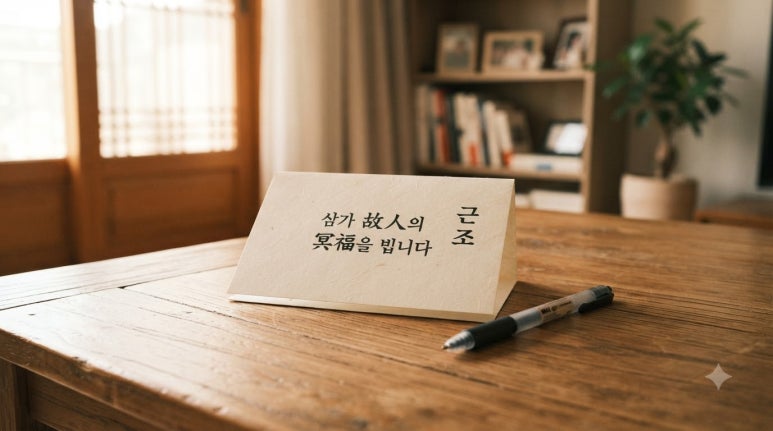 삼가 故人의
冥福을 빕니다
근조